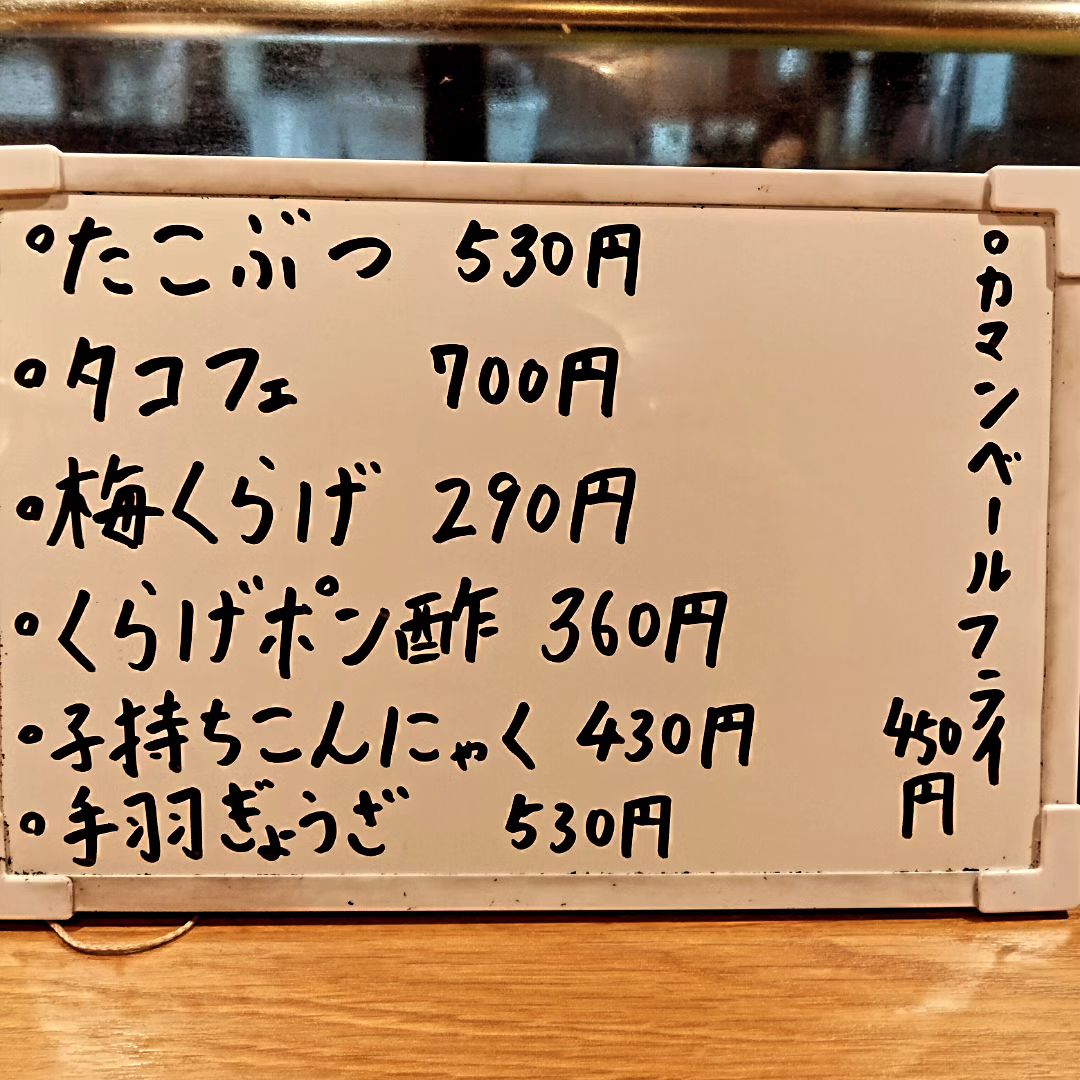 °たこぶつ 530円
°タコフェ 700円
°梅くらげ 290円
°くらげポン酢 360円
°子持ちこんにゃく 430円
°手羽ぎょうざ 530円
°カマンベールフライ
450円